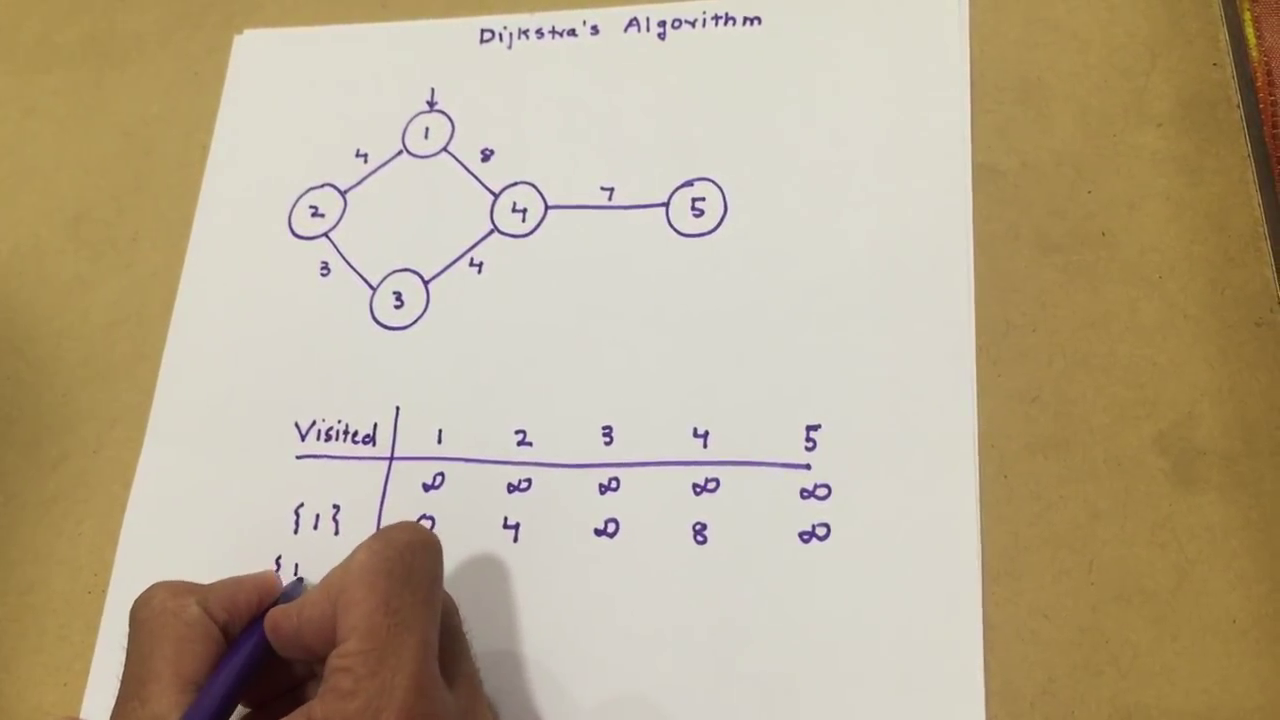 Dijkstra's Algorithm
1
4 8
2 4 7 5
3 4
3
Visited 1 2 3 4 5
∞ ∞ ∞ ∞ ∞
{1} 0 4 ∞ 8 ∞
{1